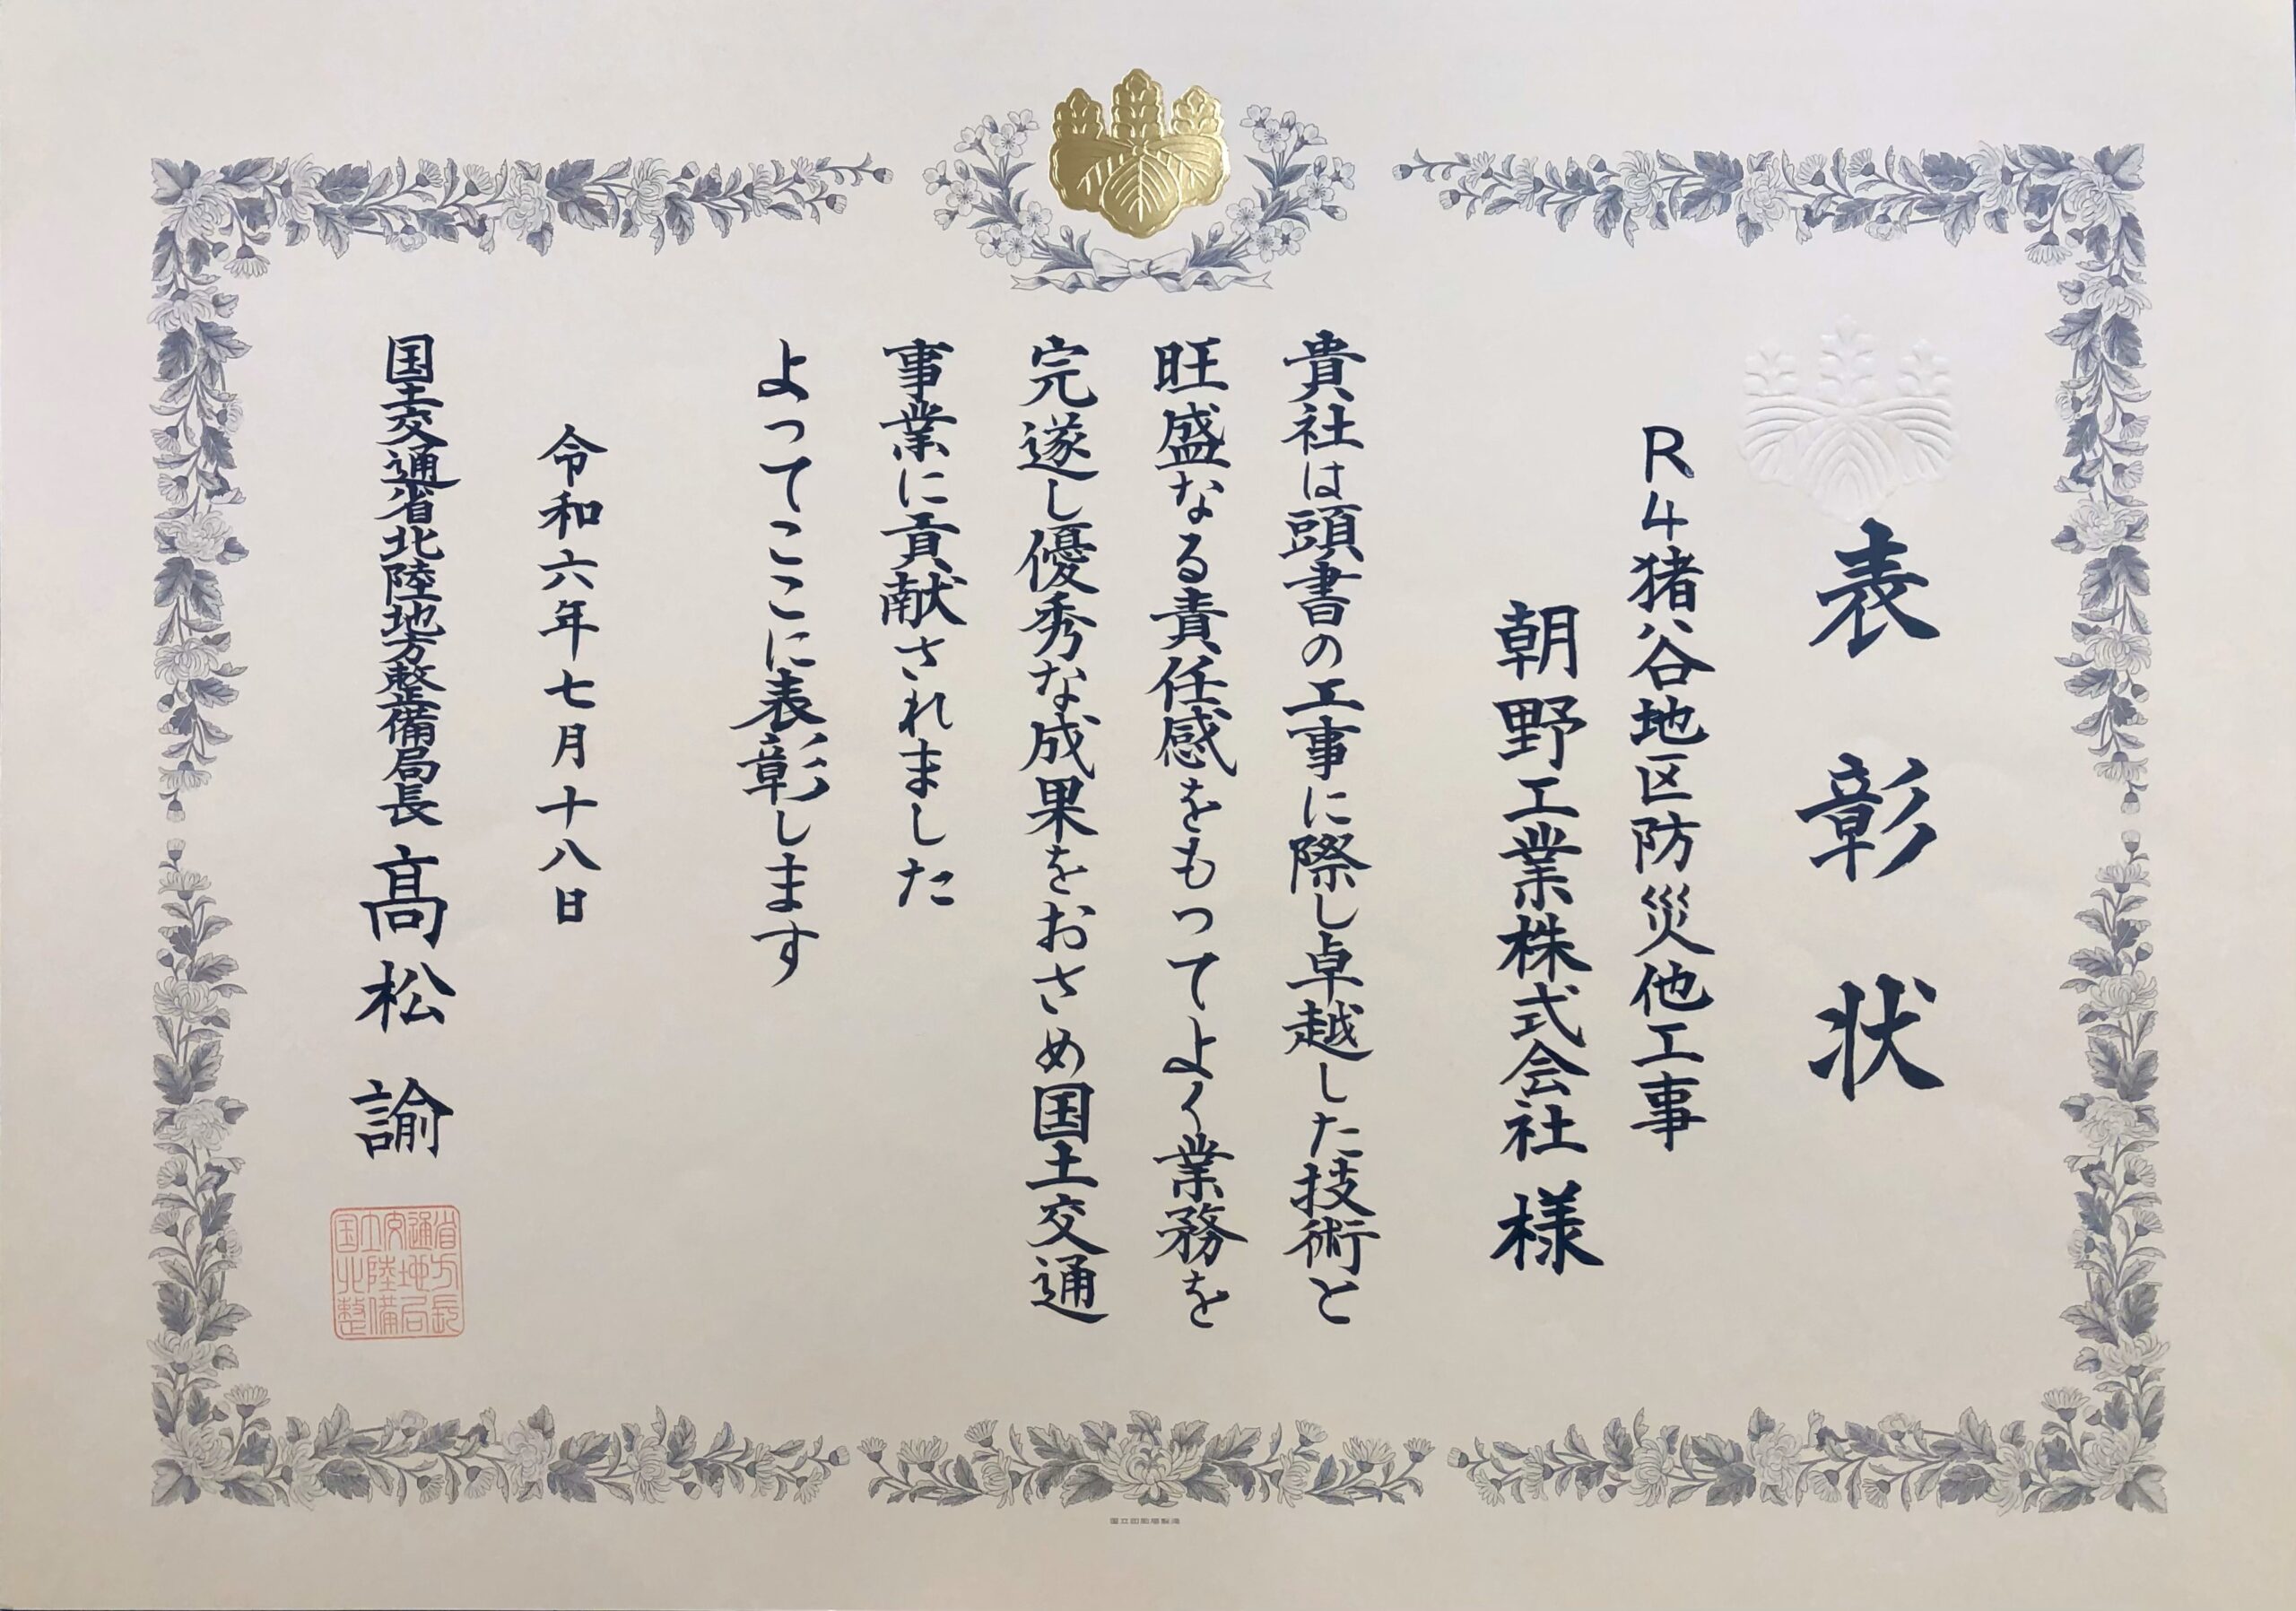 表彰状
R4猪谷地区防災他工事
朝野工業株式会社様
貴社は頭書の工事に際し卓越した技術と
旺盛なる責任感をもってよく業務を
完遂し優秀な成果をおさめ国土交通
事業に貢献されました
よってここに表彰します
令和六年七月十八日
国土交通省北陸地方整備局長 髙松諭
国土交通省
北陸地方
整備局長